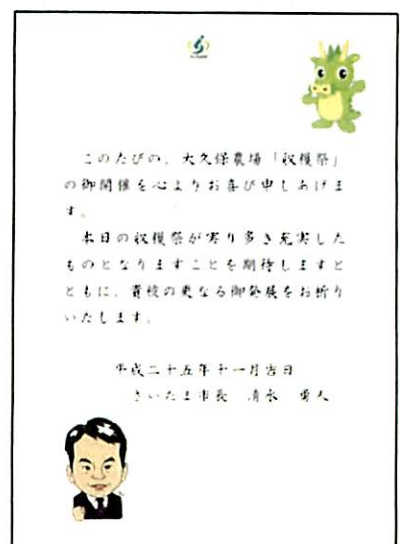 このたびの、大久保農場「収穫祭」
の御開催を心よりお喜び申しあげま
す。
本日の収穫祭が実り多き充実した
ものとなりますことを期待しますと
ともに、貴校の更なる御発展をお祈り
いたします。
平成二十五年十一月吉日
さいたま市長 清水 勇人